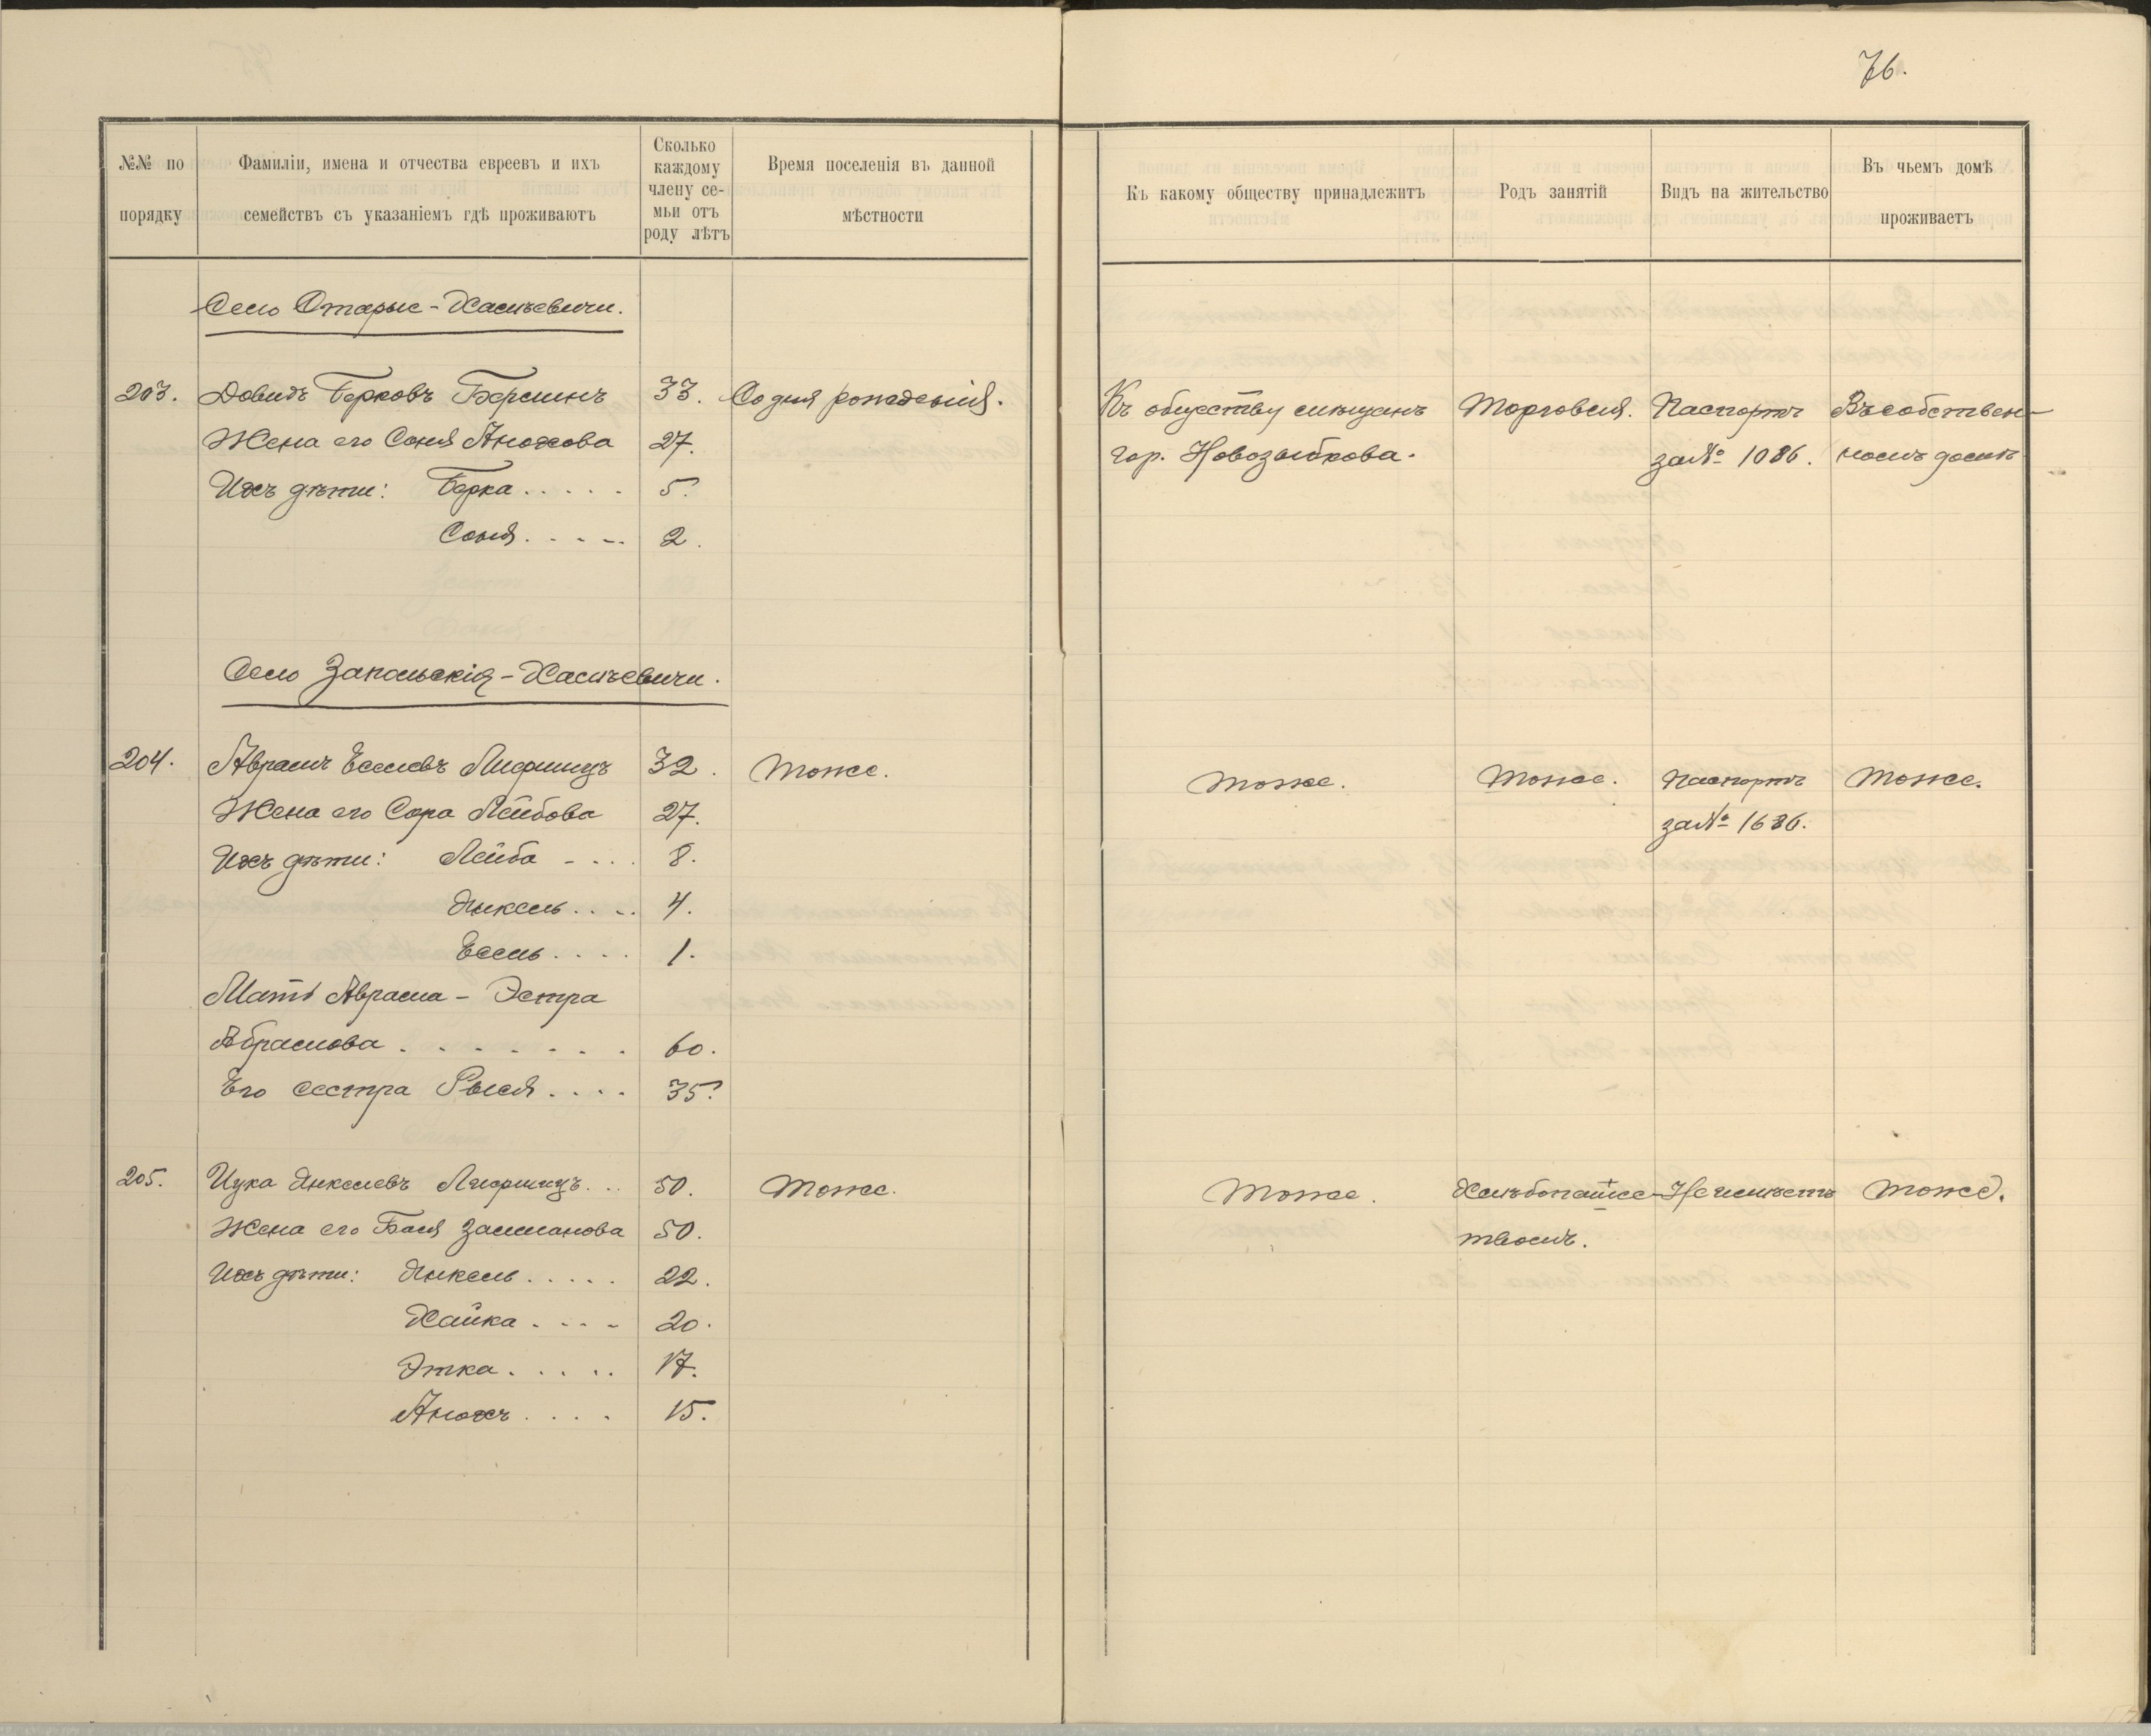 76.
№№ по порядку
Фамиліи, имена и отчества евреевъ и ихъ семействъ съ указаніемъ гдѣ проживаютъ
Сколько каждому члену семьи отъ роду лѣтъ
Время поселенія въ данной мѣстности
Къ какому обществу принадлежитъ
Родъ занятій
Видъ на жительство
Въ чьемъ домѣ проживаетъ
Село Старые-Халѣевичи.
203. Довидъ Берковъ Берлинъ 33. Со дня рожденія. Къ обществу мѣщанъ Торговля. Паспортъ Въ собствен-
Жена его Соня Анохова 27. гор. Новозыбкова. за № 1086. номъ домѣ
Ихъ дѣти: Берка..... 5.
Соня..... 2.
Село Запольскія-Халѣевичи.
204. Аврамъ Еселевъ Лифшицъ 32. Тоже. Тоже. Тоже. Паспортъ Тоже.
Жена его Сора Лейбова 27. за № 1686.
Ихъ дѣти: Лейба .... 8.
Янкель.... 4.
Есель.... 1.
Мать Аврама - Эстра
Абрамова........ 60.
Его сестра Рыся.... 35.
205. Цука Янкелевъ Лифшицъ... 50. Тоже. Тоже. Хлѣбопашес- Не имѣетъ Тоже.
Жена его Бася Залманова 50. твомъ.
Ихъ дѣти: Янкель..... 22.
Хайка.... 20.
Этка..... 17.
Анохъ.... 15.